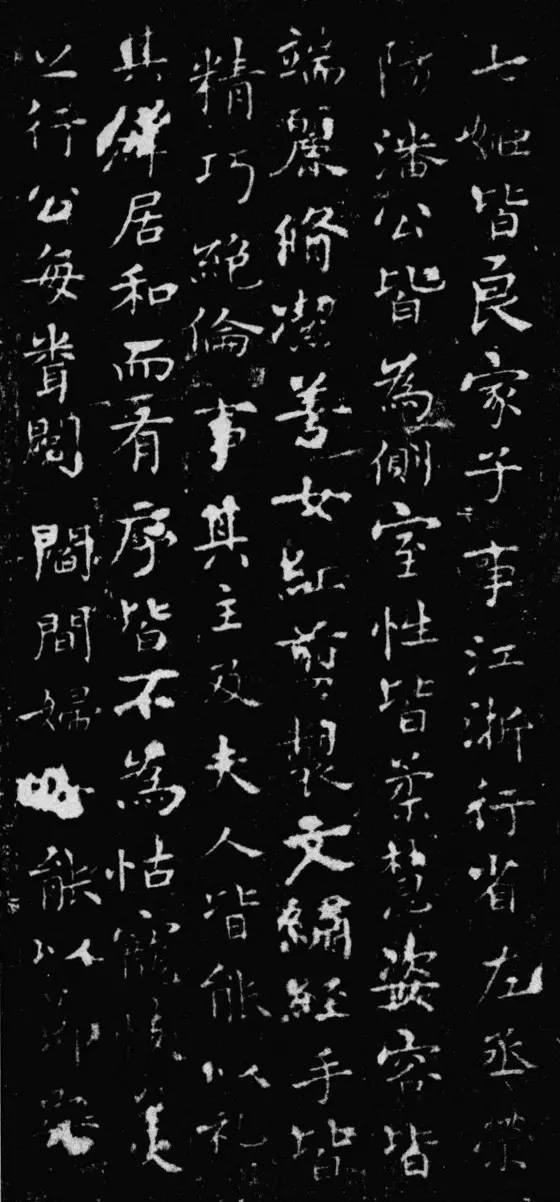 七姬皆良家子事江浙行省左丞荣
陽潘公皆為側室性皆柔慧姿容皆
端麗脩潔善女紅剪製文繡經手皆
精巧絕倫事其主及夫人皆能以礼
其儕居和而有序皆不為怙寵忮美
之行公每聞閭閻間婦能以節